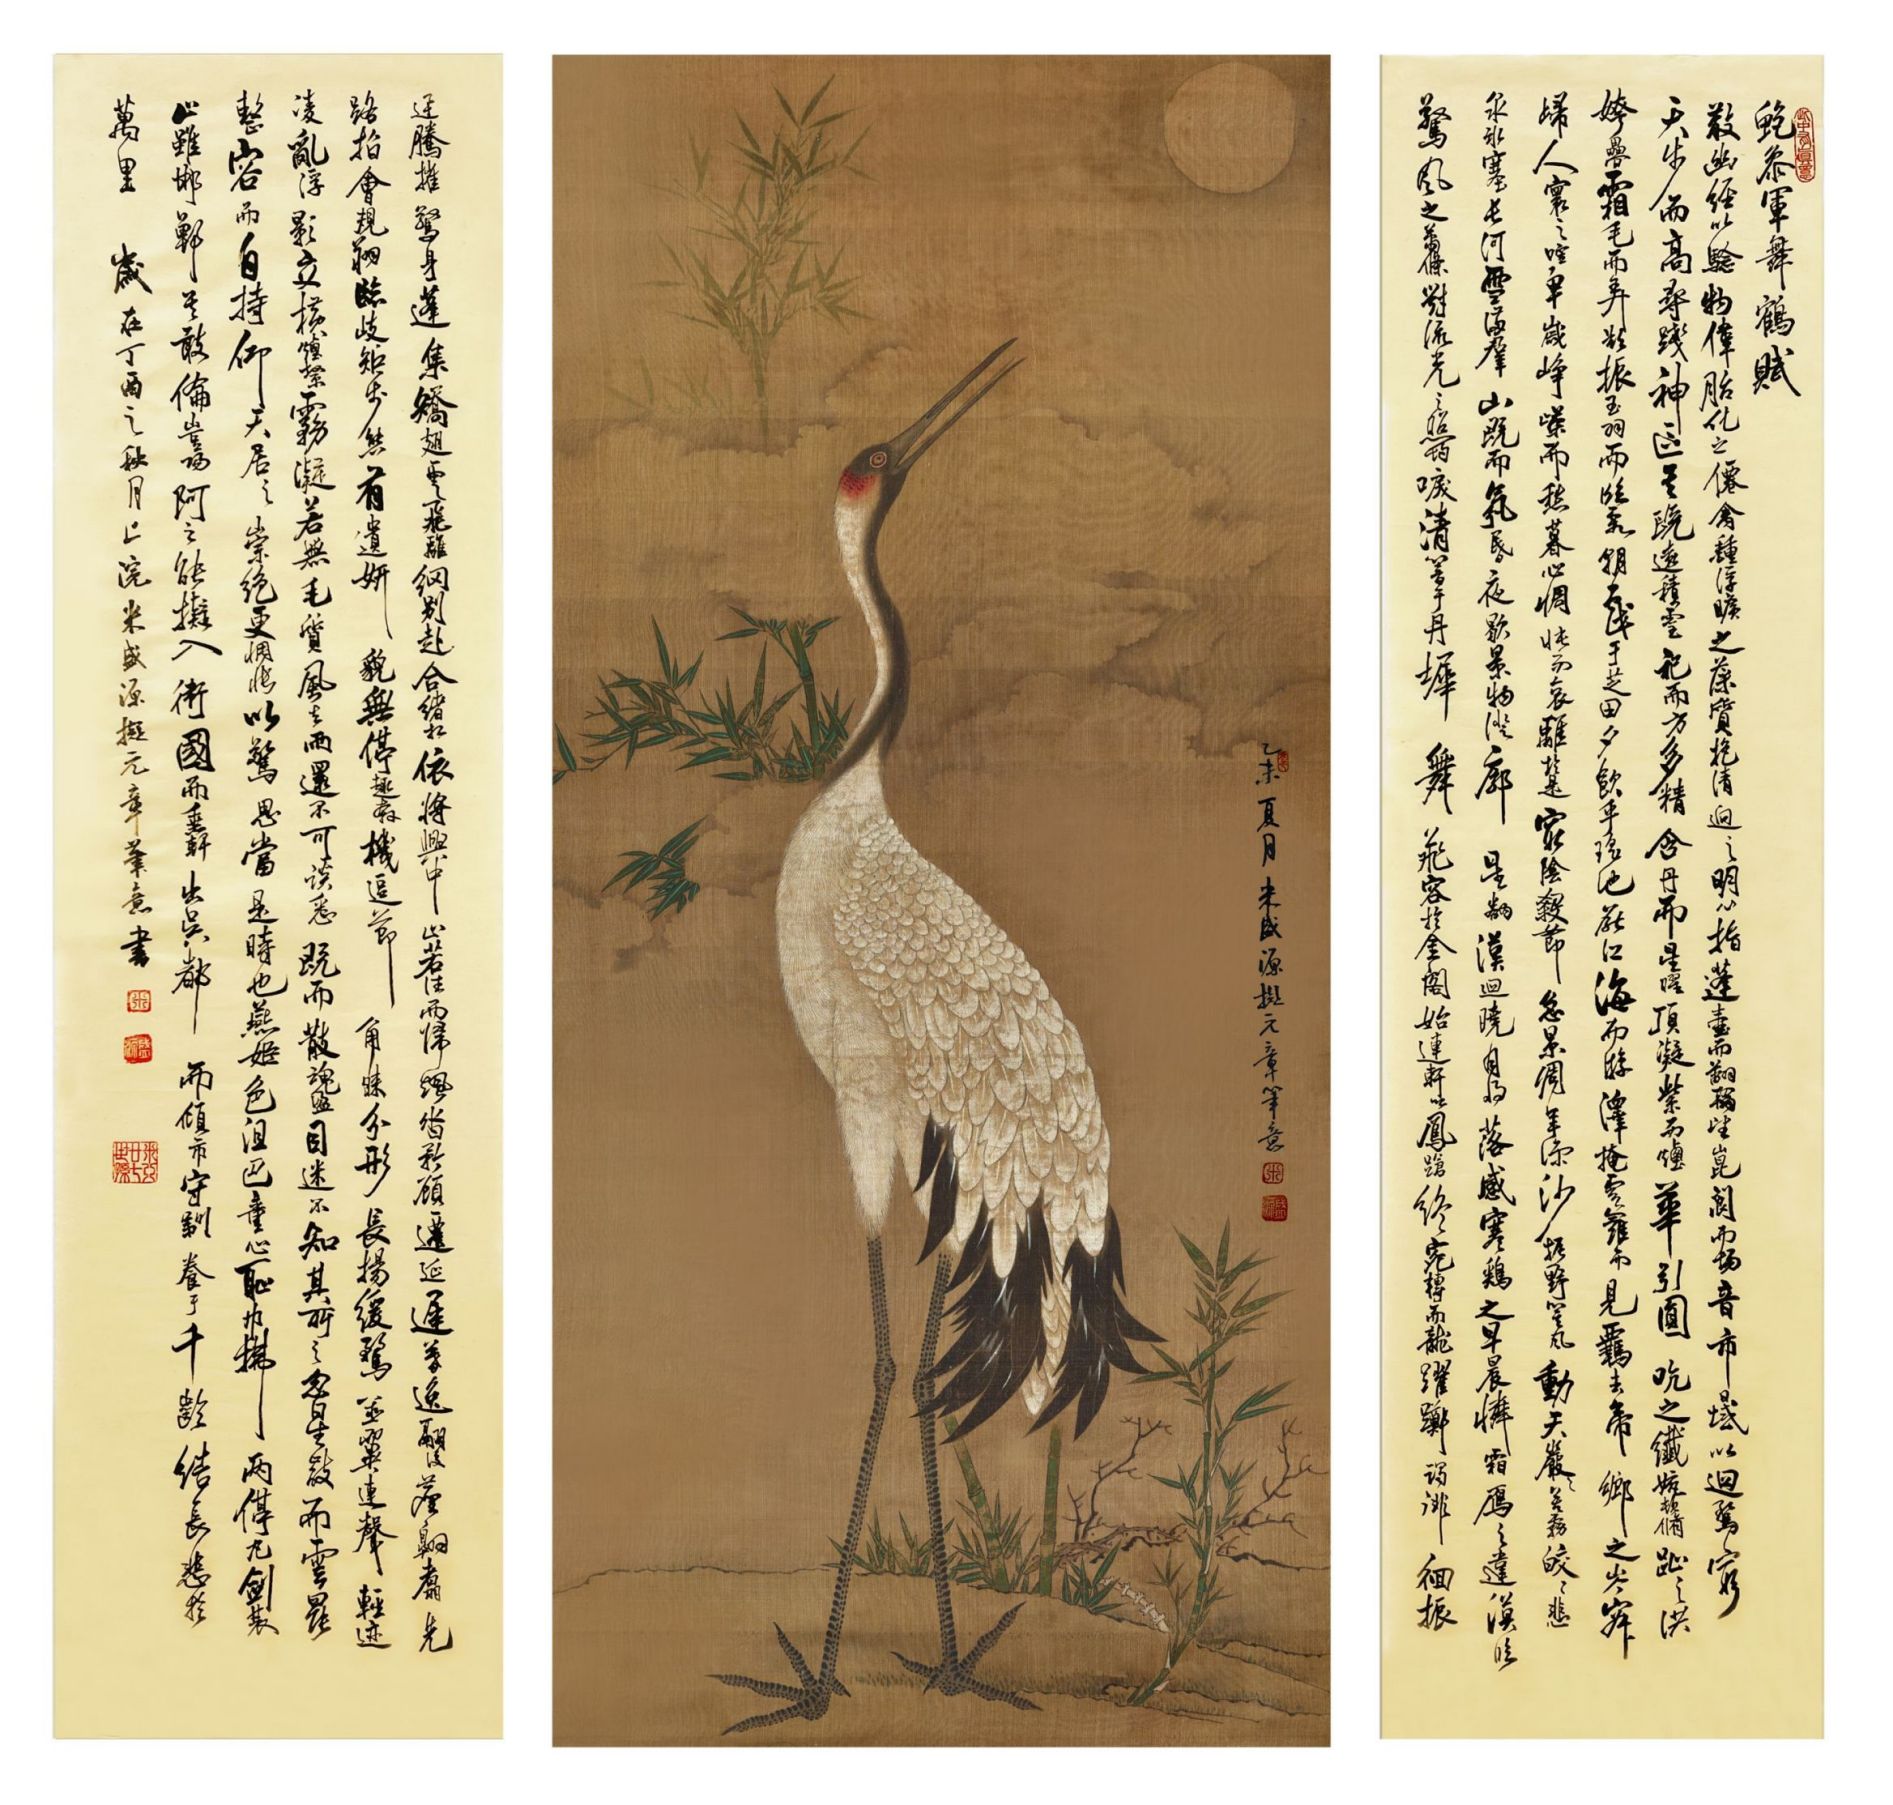 鮑參軍舞鶴賦
散幽經以驗物偉胎化之僊禽鍾浮曠之藻質抱清迥之明心指蓬壺而翻翰望崑閬而揚音帀日域以迴鶩窮
天步而高尋踐神區其既遠積靈祀而方多精含丹而星曜頂凝紫而煙華引圓吭之纖婉頓脩趾之洪
姱疊霜毛而弄影振玉羽而臨霞朝戲于芝田夕飲乎瑤池厭江海而游澤掩雲羅而見羈去帝鄉之岑寂
歸人寰之喧卑歲崢嶸而愁暮心惆悵而哀離於是窮陰殺節急景凋年涼沙振野箕風動天嚴嚴苦霧皎皎悲
泉冰塞長河雪滿羣山既而氛昏夜歇景物澄廓星翻漢迴曉月將落感寒鷄之早晨憐霜鴈之違漠臨
驚風之蕭條對流光之照灼唳清響于丹墀舞飛容於金閣始連軒以鳳蹌終宛轉而龍躍躑躅徘徊振
乙未夏月米盛源擬元章筆意
迅騰摧驚身蓬集矯翅雪飛離綱別赴合緒相依將興中止若往而歸颯沓矜顧遷延遲暮逸翮後塵翱翥先
路指會規翔臨岐矩步態有遺妍貌無停趣奔機逗節角睞分形長揚緩鶩並翼連聲輕迹
凌亂浮影交橫煙繁霧凝若無毛質風去雨還不可談悉既而散魂盪目迷不知其所之忽星散而雲罷
整容而自持仰天居之崇絕更惆悵以驚思當是時也燕姬色沮巴童心恥巾拂兩停丸劍雙
止雖邯鄲其敢倫豈陽阿之能擬入衛國而乘軒出吳都而傾市守馴養于千齡結長悲於
萬里 歲在丁酉之秋月上浣米盛源擬元章筆意書